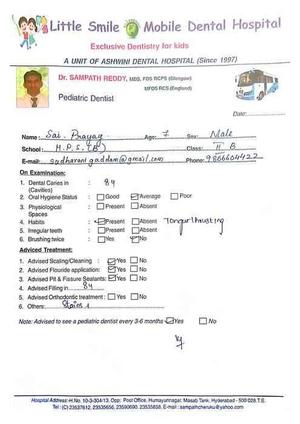 Little Smile Mobile Dental Hospital
Exclusive Dentistry for kids
A UNIT OF ASHWINI DENTAL HOSPITAL (Since 1997)
Dr. SAMPATH REDDY, MDS, FDS RCPS (Glasgow)
MFDS RCS (England)
Pediatric Dentist
Date:
Name: Sai Prayag Age: 7 Sex: Male
School: H.P.S. (B) Class: II B
E-mail: sudharani.gaddam@gmail.com Phone: 9866604422
On Examination:
1. Dental Caries in (Cavities) : 84
2. Oral Hygiene Status : Good Average Poor
3. Physiological Spaces : Present Absent
4. Habits : Present Absent Tongue Thrusting
5. Irregular teeth : Present Absent
6. Brushing twice : Yes No
Adviced Treatment:
1. Advised Scaling/Cleaning : Yes No
2. Advised Flouride application: Yes No
3. Advised Pit & Fissure Sealants: Yes No
4. Advised Filling in 84
5. Advised Orthodontic treatment : Yes No
6. Others:
Note: Advised to see a pediatric dentist every 3-6 months Yes No
Hospital Address: H.No. 10-3-304/13, Opp. Post Office, Humayunnagar, Masab Tank, Hyderabad - 500 028 T.S.
Tel : (C) 23537612, 23535656, 23590690, 23535858, E-mail : sampathcheruku@yahoo.com